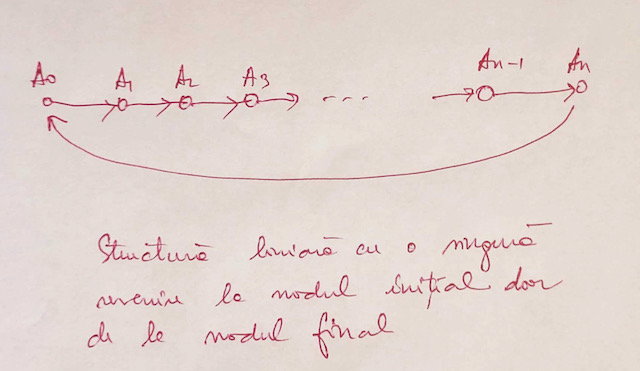 A0 A1 A2 A3 An-1 An
Structură liniară cu o singură
revenire la nodul inițial doar
de la nodul final